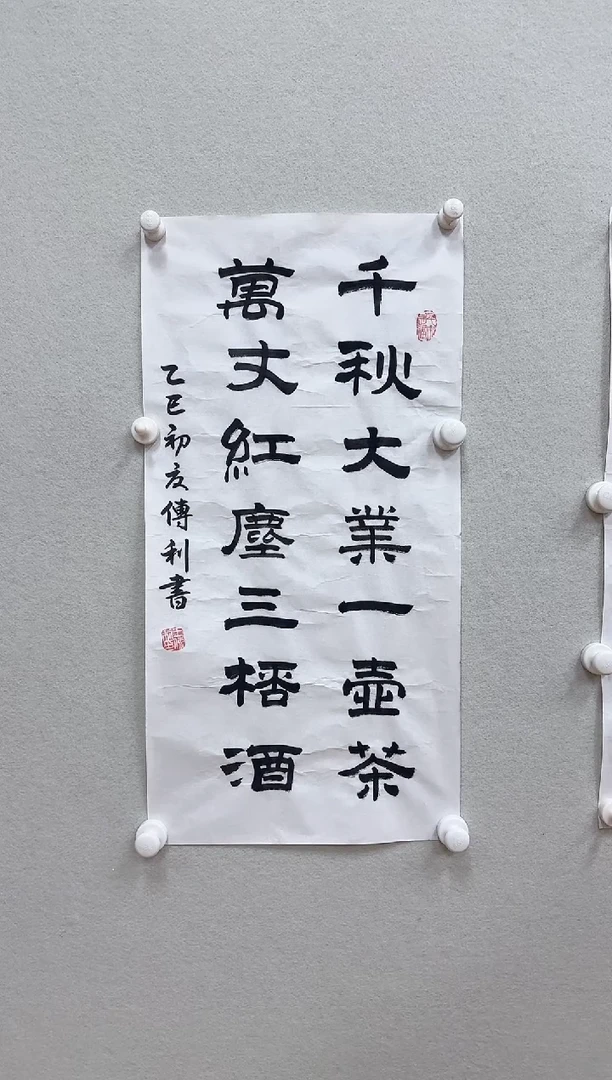 千秋大業一壺茶
萬丈紅塵三桮酒
乙巳初夏傳利書